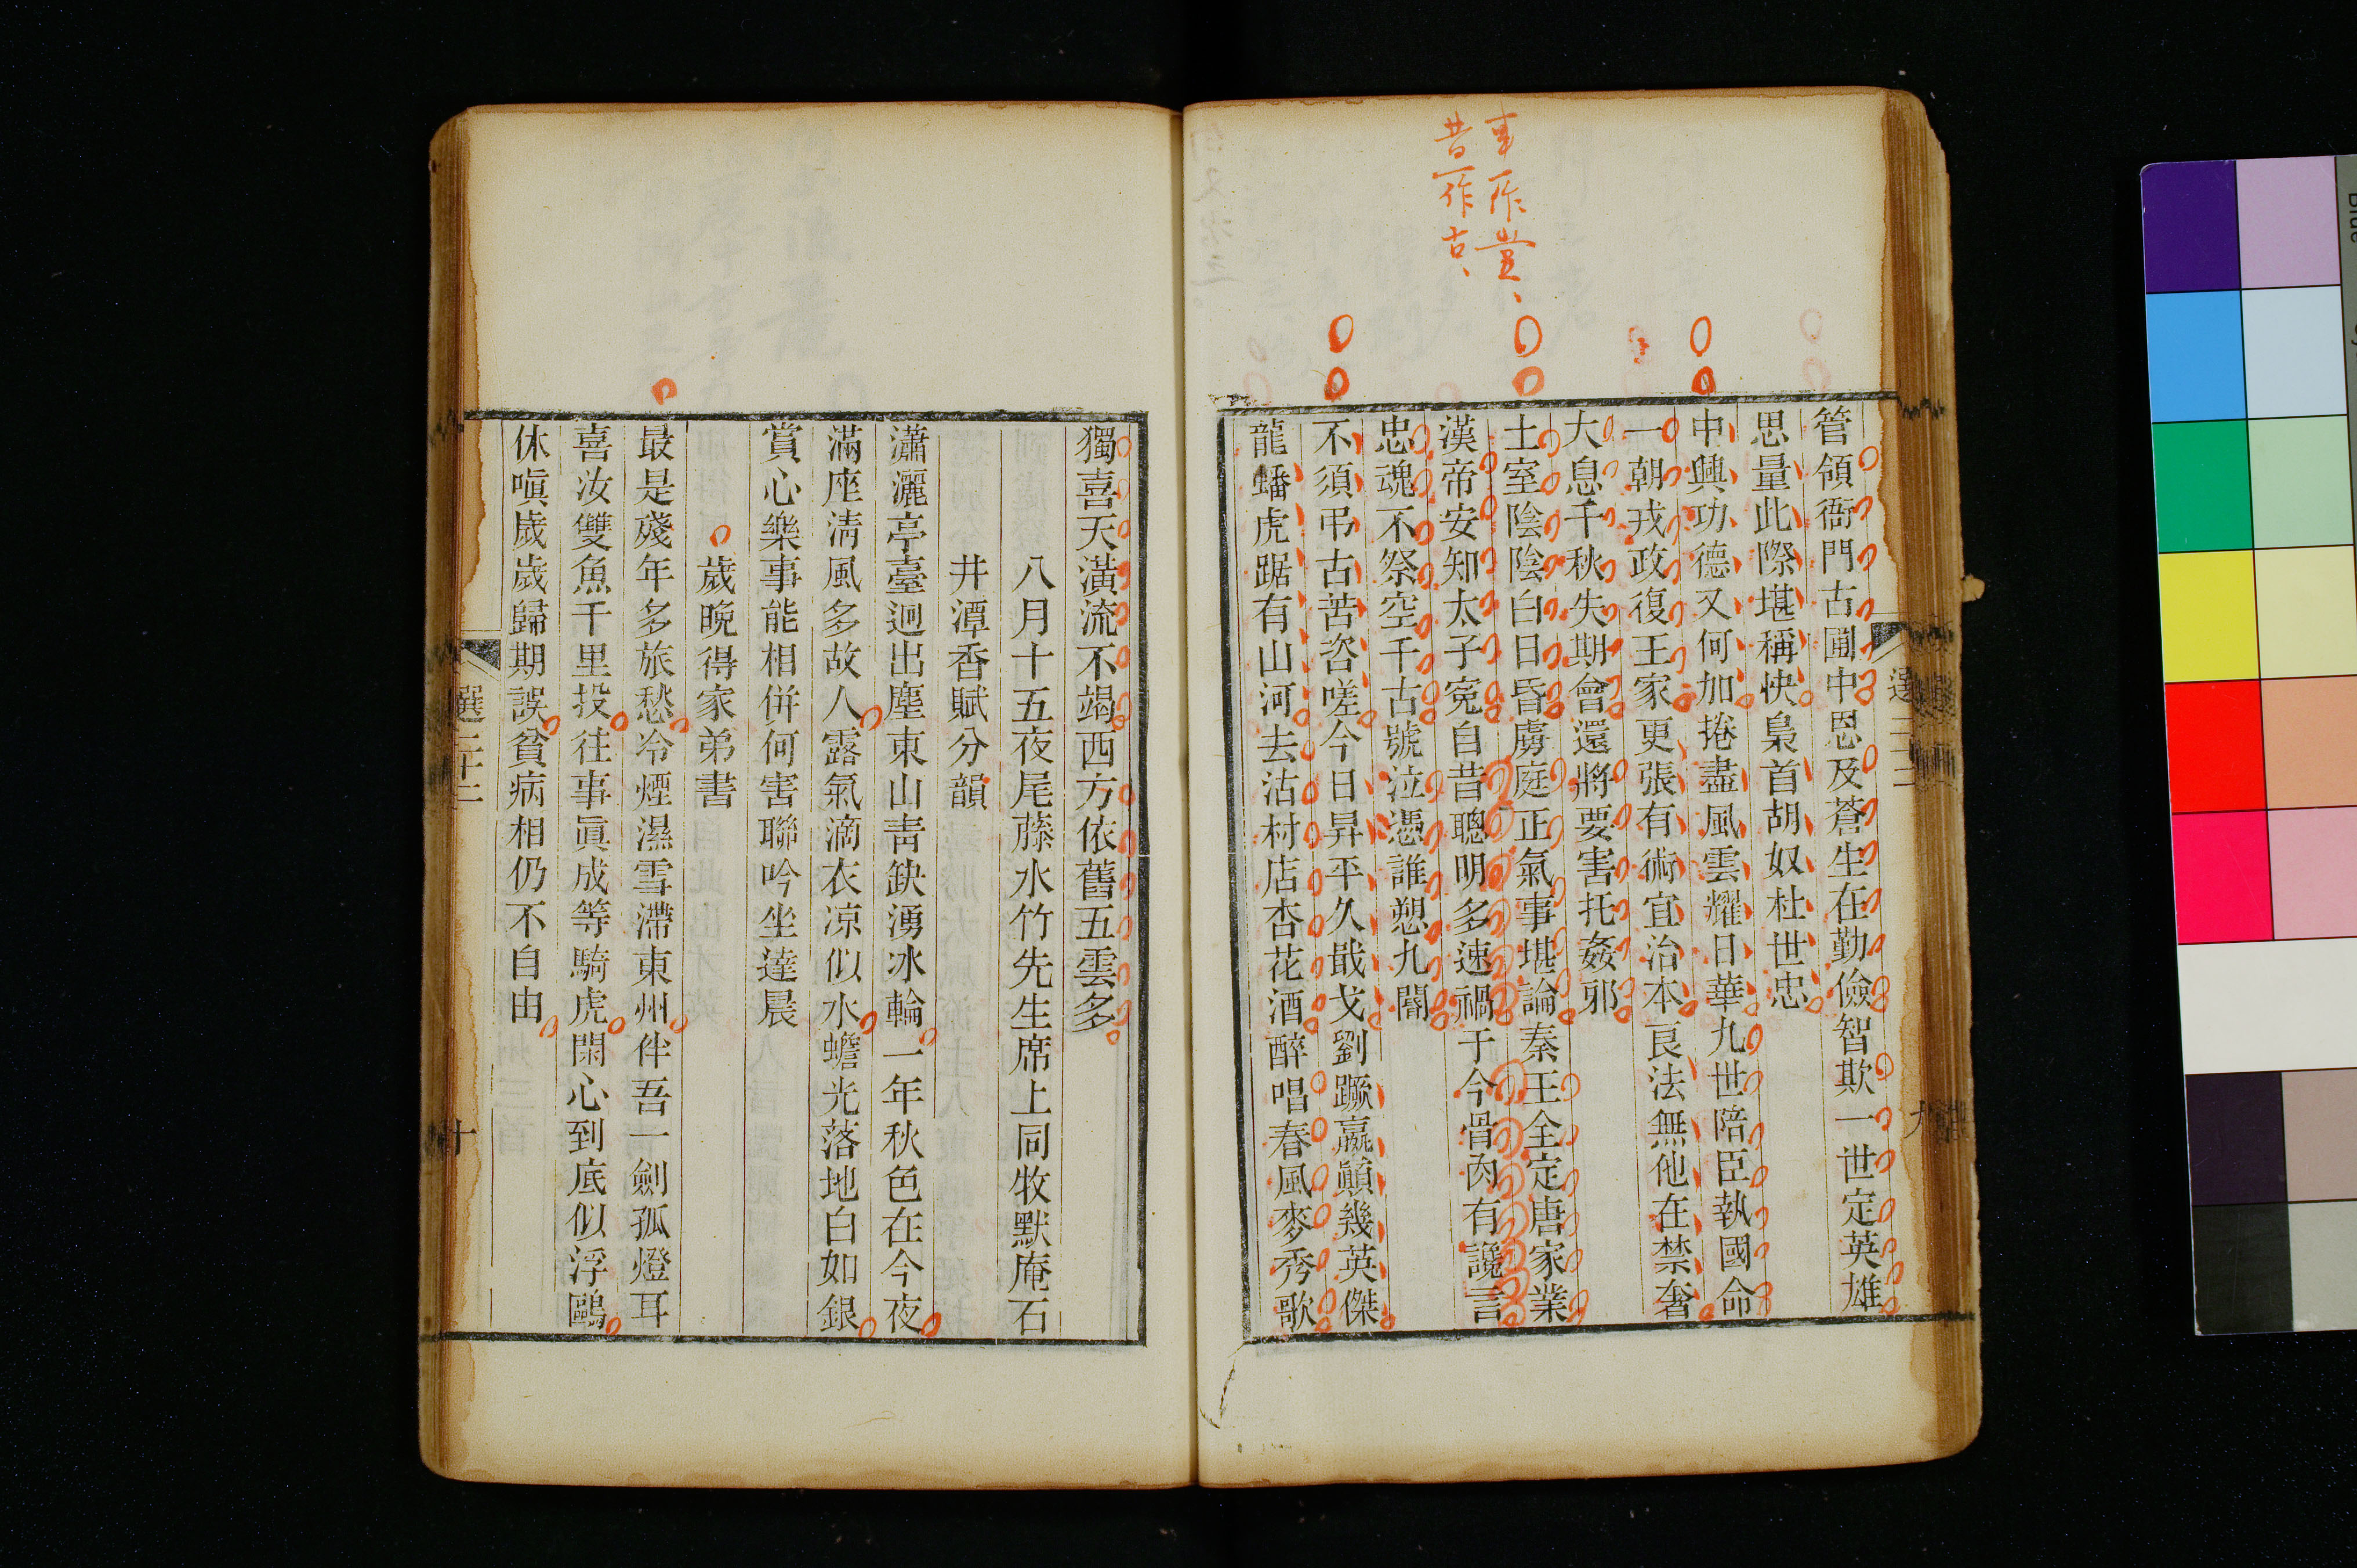 事一作豈、
昔一作古、
管領衙門古圃中恩及蒼生在勤儉智欺一世定英雄
思量此際堪稱快梟首胡奴杜世忠
中興功德又何加捲盡風雲耀日華九世陪臣執國命
一朝戎政復王家更張有術宜治本良法無他在禁奢
大息千秋失期會還將要害托姦邪
土室陰陰白日昏虜庭正氣事堪論秦王全定唐家業
漢帝安知太子寃自昔聰明多速禍于今骨肉有讒言
忠魂不祭空千古號泣憑誰愬九閽
不須弔古苦咨嗟今日昇平久戢戈劉蹶嬴顚幾英傑
龍蟠虎踞有山河去沽村店杏花酒醉唱春風麥秀歌
選二十二
九
獨喜天潢流不竭西方依舊五雲多
八月十五夜尾藤水竹先生席上同牧默庵石
井潭香賦分韻
瀟灑亭臺迥出塵東山靑缺湧冰輪一年秋色在今夜
滿座淸風多故人露氣滴衣凉似水蟾光落地白如銀
賞心樂事能相併何害聯吟坐達晨
歲晩得家弟書
最是殘年多旅愁冷煙濕雪滯東州伴吾一劍孤燈耳
喜汝雙魚千里投往事眞成等騎虎閑心到底似浮鷗
休嗔歲歲歸期誤貧病相仍不自由
選二十二
十
Blue